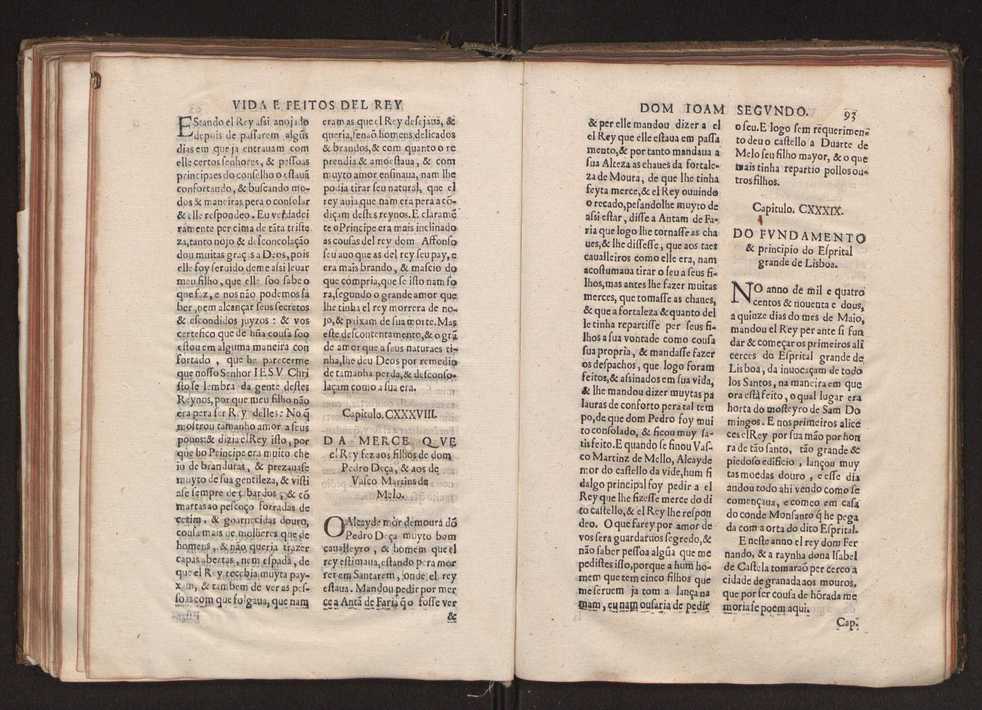 VIDA E FEITOS DEL REY
EStando el Rey assi anojado
depois de passarem algũs
dias em que ja entrauam com
elle certos senhores, & pessoas
principaes do conselho o estauã
confortando, & buscando mo-
dos & maneiras pera o consolar
& elle respondeo. Eu verdadei
ramente per cima de tãta triste
za, tanto nojo & desconsolação
dou muitas graças a Deos, pois
elle foy seruido de me assi leuar
meu filho, que elle soo sabe o
que faz, e nos não podemos sa
ber, nem alcançar seus secretos
& escondidos juyzos: & vos
certefico que de hũa cousa soo
estou em alguma maneira con
fortado, que he parecerme
que nosso Senhor IESV Chri
sto se lembra da gente destes
Reynos, por que meu filho não
era pera ser Rey delles: No q̃
mostrou tamanho amor a seus
pouos: & dizia el Rey isto, por
que ho Principe era muito che
io de branduras, & prezauase
muyto de sua gentileza, & visti
ase sempre de tabardos, & cõ
martas ao pescoço forradas de
cetim, & goarnecidas douro,
cousa mais de molheres que de
homens, & não queria trazer
capas abertas, nem espada, de
que el Rey recebia muyta pay-
xam, & tambem de ver as pes-
soas com que folgaua, que nam
eram as que el Rey desejaua, &
queria, senaõ homens delicados
& brandos, & com quanto o re
prendia & amoestaua, & com
muyto amor ensinaua, nam lhe
podia tirar seu natural, que el
rey auia que nam era pera a cõ-
diçam destes reynos. E claramẽ
te o Principe era mais inclinado
as cousas del rey dom Affonso
seu auo que as del rey seu pay, e
era mais brando, & macio do
que compria, que se isto nam fo
ra, segundo o grande amor que
lhe tinha el rey morrera de no-
jo, & paixam de sua morte. Mas
este descontentamento, & o grã
de amor que a seus naturaes ti-
nha, lhe deu Deos por remedio
de tamanha perda, & desconso-
laçam como a sua era.
Capitulo. CXXXVIII.
DA MERCE QVE
el Rey fez aos filhos de dom
Pedro Deça, & aos de
Vasco Martins de
Melo.
O Alcayde mór de moura dõ
Pedro Deça muyto bom
caualleyro, & homem que el
rey estimaua, estando pera mor
rer em Santarem, onde el rey
estaua. Mandou pedir por mer
ce a Antã de Faria q̃ o fosse ver
&
DOM IOAM SEGVNDO. 93
& per elle mandou dizer a el
el Rey que elle estaua em passa
mento, & por tanto mandaua a
sua Alteza as chaues da fortale-
za de Moura, de que lhe tinha
feyta merce, & el Rey ouuindo
o recado, pesandolhe muyto de
assi estar, disse a Antam de Fa-
ria que logo lhe tornasse as cha
ues, & lhe dissesse, que aos taes
caualleiros como elle era, nam
acostumaua tirar o seu a seus fi-
lhos, mas antes lhe fazer muitas
merces, que tomasse as chaues,
& que a fortaleza & quanto del
le tinha repartisse per seus fi-
lhos a sua vontade como cousa
sua propria, & mandasse fazer
os despachos, que logo foram
feitos, & asinados em sua vida,
& lhe mandou dizer muytas pa
lauras de conforto pera tal tem
po, de que dom Pedro foy mui
to consolado, & ficou muy sa-
tisfeito. E quando se finou Vas-
co Martinz de Mello, Alcayde
mor do castello da vide, hum fi
dalgo principal foy pedir a el
Rey que lhe fizesse merce do di
to castello, & el Rey lhe respon
deo. O que farey por amor de
vos sera guardaruos segredo, &
não saber pessoa algũa que me
pedistes isso, porque a hum ho-
mem que tem cinco filhos que
me seruem ja com a lança na
mam, eu nam ousaria de pedir
o seu. E logo sem requerimen
to deu o castello a Duarte de
Melo seu filho mayor, & o que
mais tinha repartio pollos ou-
tros filhos.
Capitulo. CXXXIX.
DO FVNDAMENTO
& principio do Esprital
grande de Lisboa.
NO anno de mil e quatro
centos & nouenta e dous,
a quinze dias do mes de Maio,
mandou el Rey per ante si fun
dar & começar os primeiros ali
cerces do Esprital grande de
Lisboa, da inuocaçam de todo
los Santos, na maneira em que
ora está feito, o qual lugar era
horta do mosteyro de Sam Do
mingos. E nos primeiros alice
ces el Rey por sua mão por hon
ra de tão santo, tão grande &
piedoso edificio, lançou muy
tas moedas douro, e esse dia
andou todo ahi vendo como se
começaua, e comeo em casa
do conde Monsanto q̃ he pega
da com a orta do dito Esprital.
E neste anno el rey dom Fer
nando, & a raynha dona Isabel
de Castela tomaraõ per cerco a
cidade de granada aos mouros,
que por ser cousa de hõrada me
moria se poem aqui.
Cap.